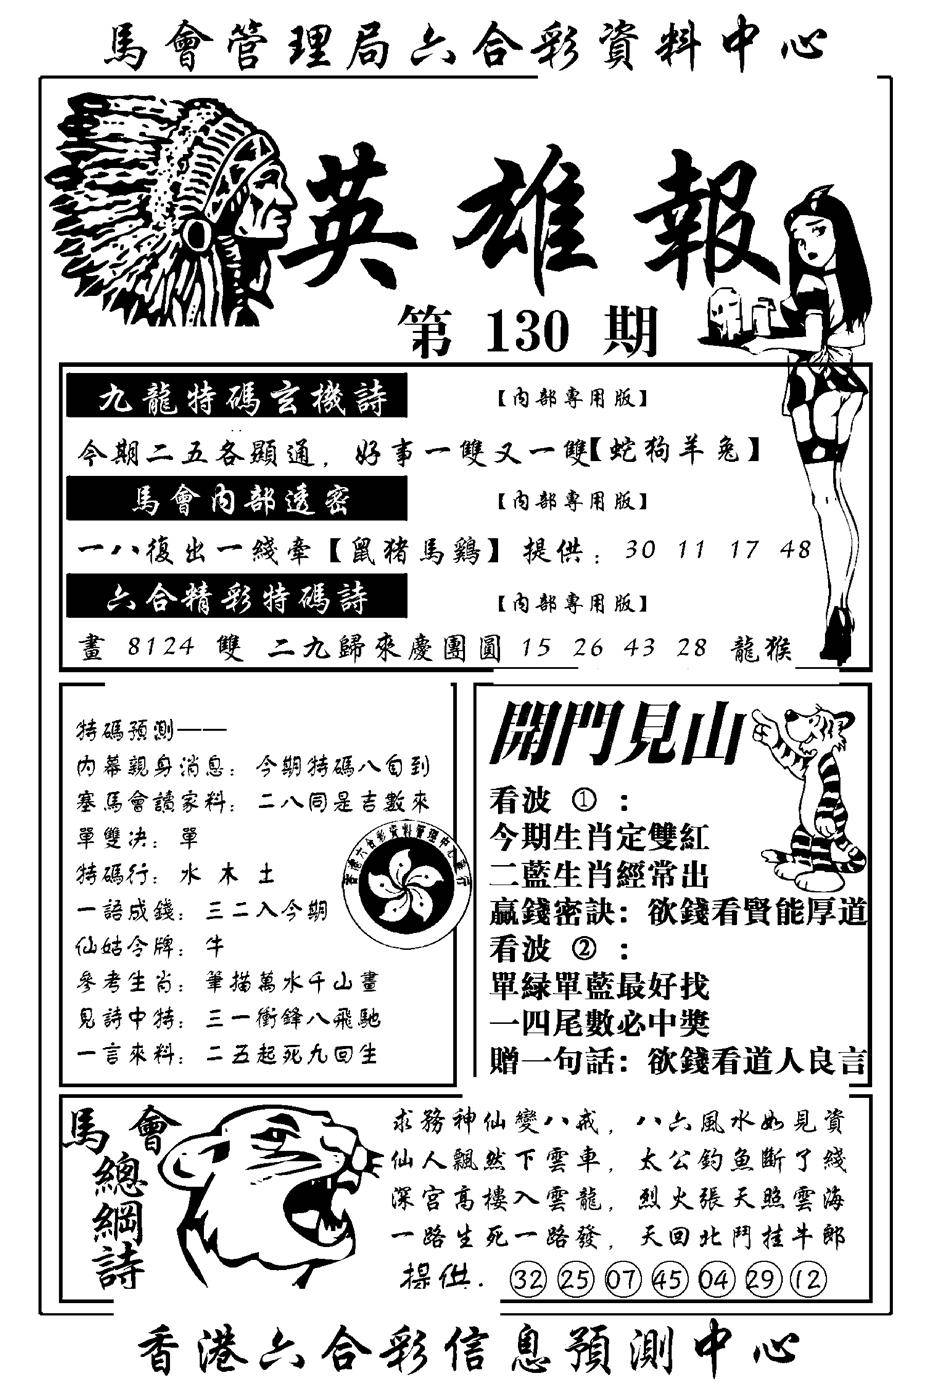 馬會管理局六合彩資料中心
英雄報
第 130 期
九龍特碼玄機詩 【内部專用版】
今期二五各顯通，好事一雙又一雙【蛇狗羊兔】
馬會内部透密 【内部專用版】
一八復出一綫牽【鼠猪馬鷄】提供：30 11 17 48
六合精彩特碼詩 【内部專用版】
畫 8124 雙 二九歸來慶團圓 15 26 43 28 龍猴
特碼預測——
内幕親身消息：今期特碼八自到
塞馬會讀家料：二八同是吉數來
單雙决：單
特碼行：水 木 土
一語成錢：三二入今期
仙姑令牌：牛
參考生肖：筆描萬水千山畫
見詩中特：三一衝鋒八飛馳
一言來料：二五起死九回生
開門見山
看波 ①：
今期生肖定雙紅
二藍生肖經常出
贏錢密訣：欲錢看賢能厚道
看波 ②：
單緑單藍最好找
一四尾數必中獎
贈一句話：欲錢看道人良言
馬會總綱詩
求務神仙變八戒，八六風水如見資
仙人飄然下雲車，太公釣魚斷了綫
深宫高樓入雲龍，烈火張天照雲海
一路生死一路發，天回北鬥挂牛郎
提供. 32 25 07 45 04 29 12
香港六合彩信息預測中心